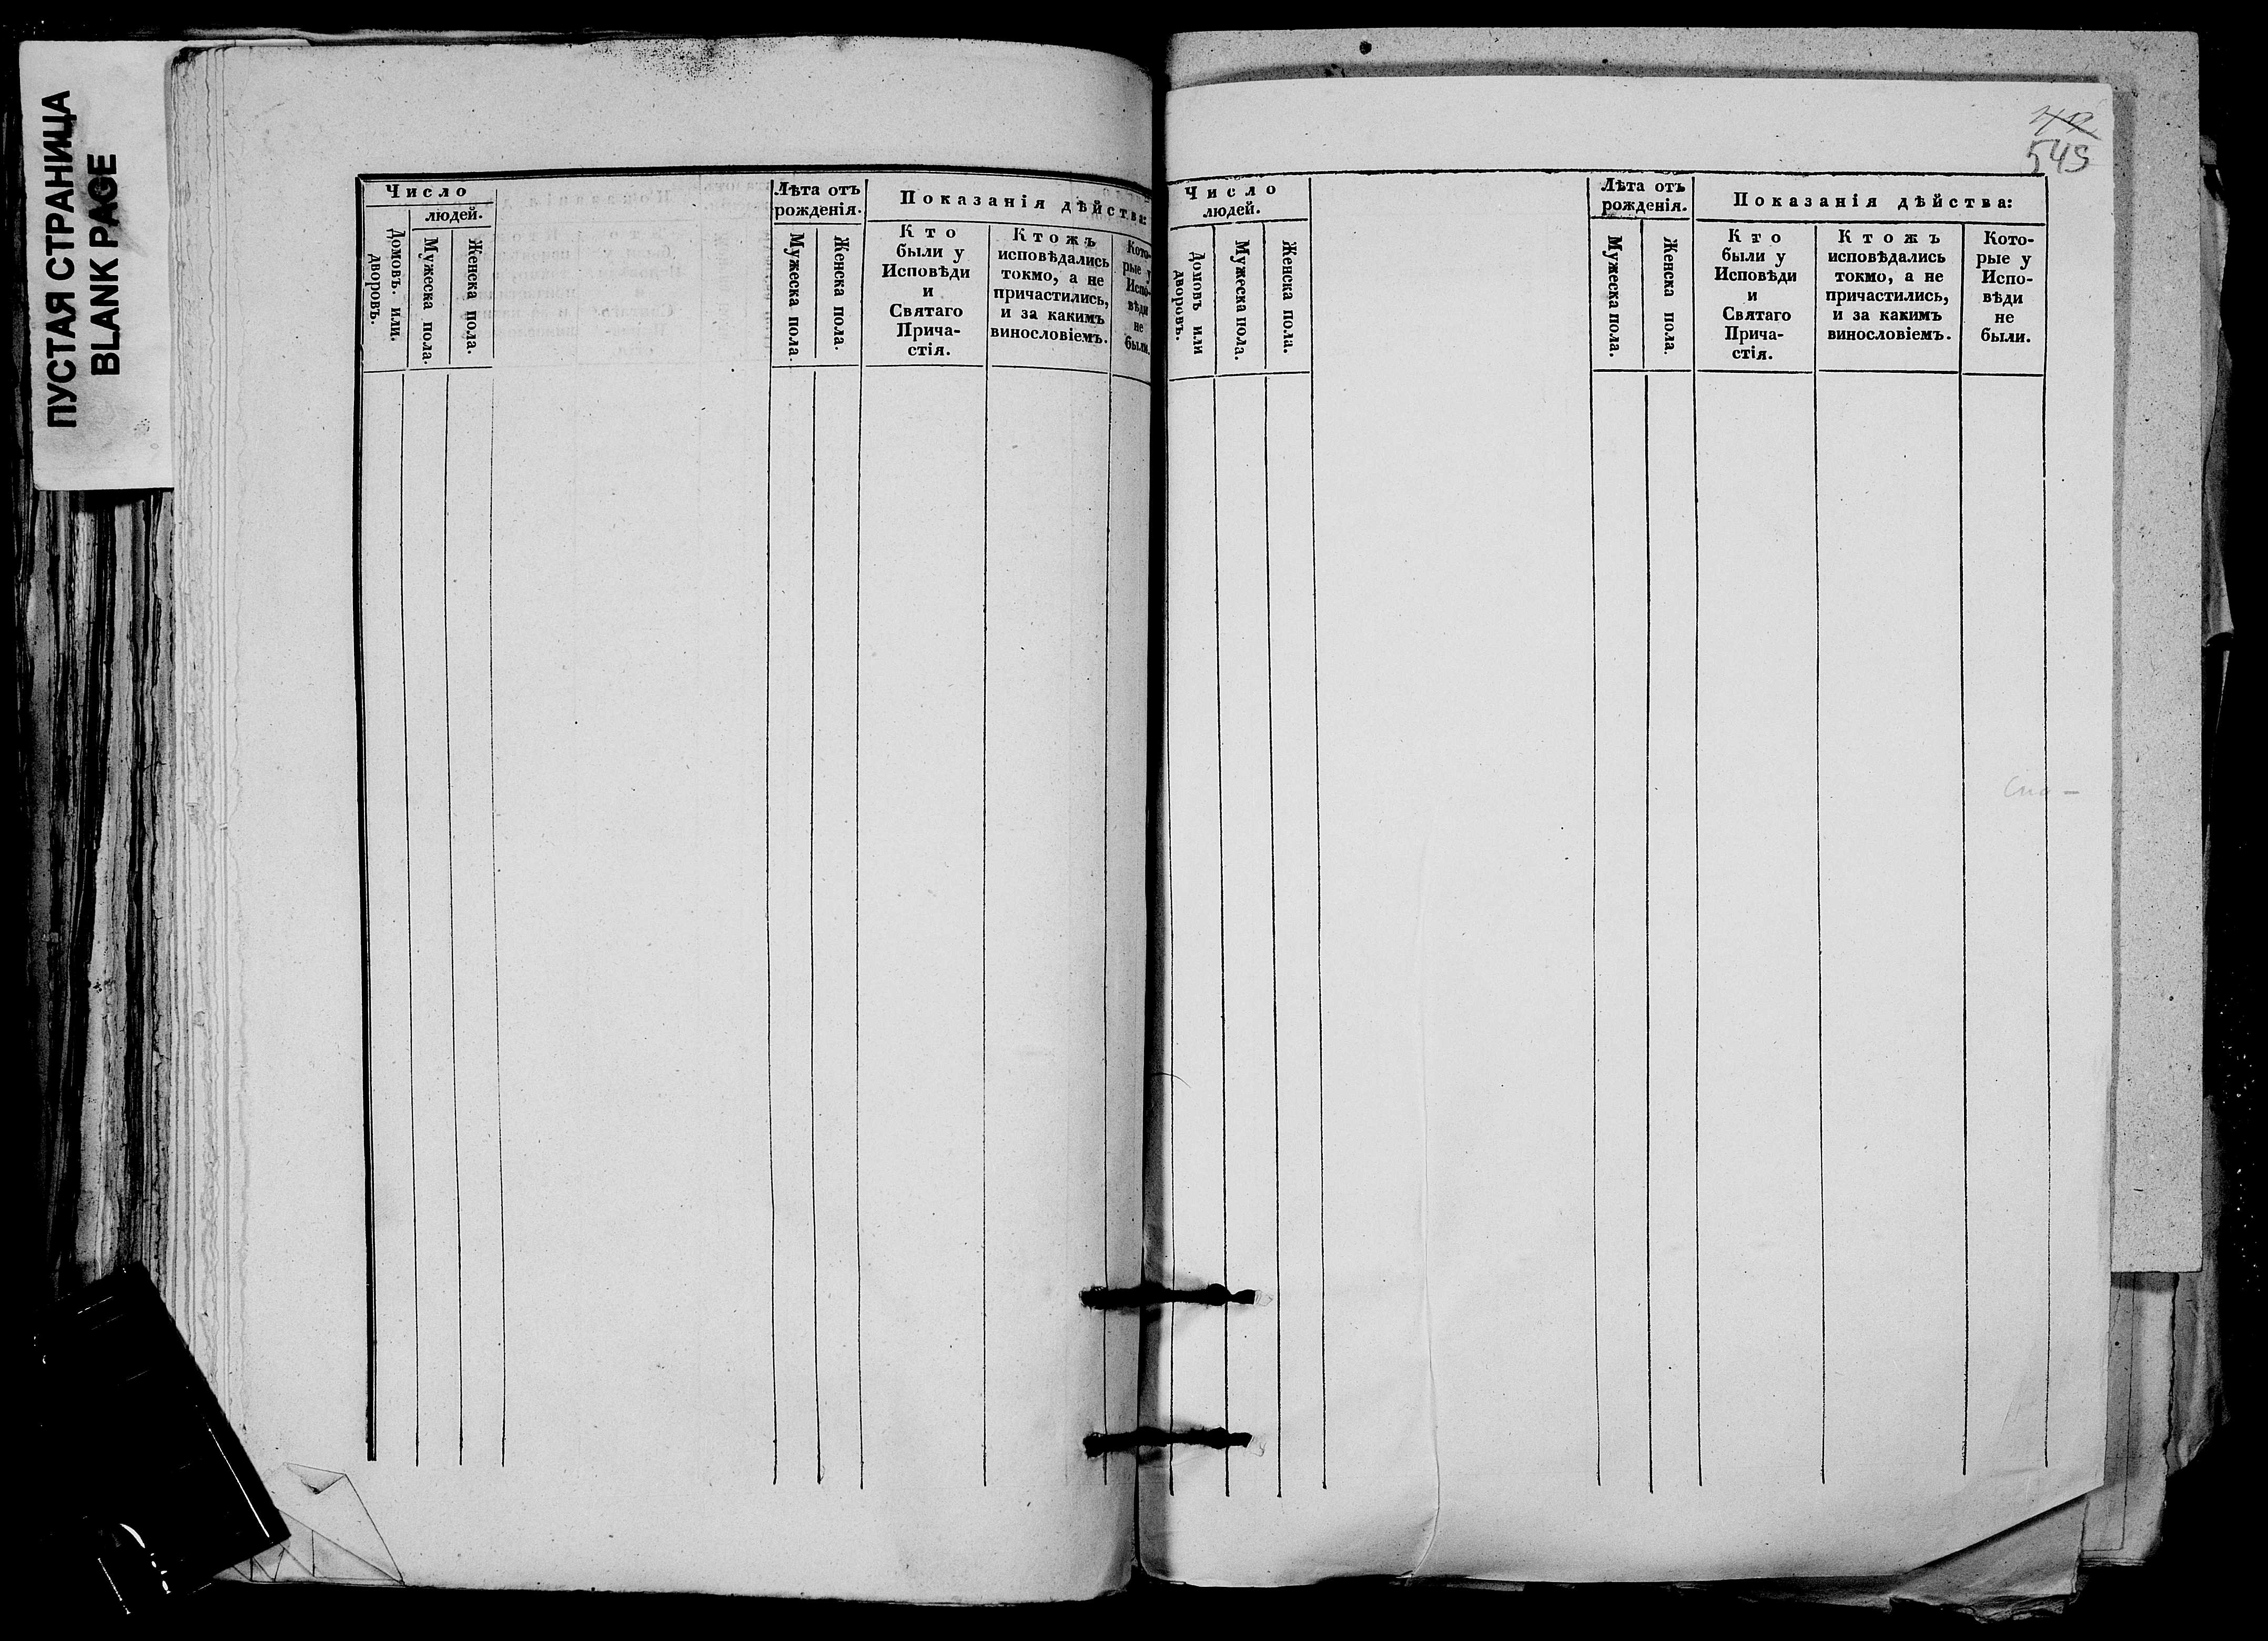 ПУСТАЯ СТРАНИЦА
BLANK PAGE
Число
людей.
Домовъ. или.
дворовъ.
Мужеска пола.
Женска пола.
Лѣта отъ
рожденія.
Мужеска пола.
Женска пола.
Показанія дѣйства:
Кто
были у
Исповѣди
и
Святаго
Прича-
стія.
Ктожъ
исповѣдались
токмо, а не
причастились,
и за какимъ
винословіемъ.
Кото-
рые у
Испо-
вѣди
не
были.
549
Число
людей.
Домовъ или
дворовъ.
Мужеска пола.
Женска пола.
Лѣта отъ
рожденія.
Мужеска пола.
Женска пола.
Показанія дѣйства:
Кто
были у
Исповѣди
и
Святаго
Прича-
стія.
Ктожъ
исповѣдались
токмо, а не
причастились,
и за какимъ
винословіемъ.
Кото-
рые у
Испо-
вѣди
не
были.